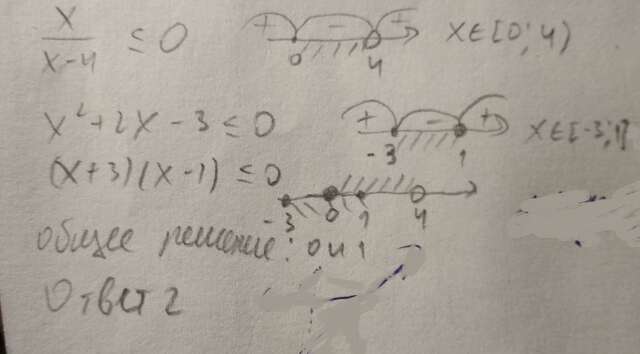 x/(x-4) ≤ 0 + - + 0 4 x∈[0; 4)
x²+2x-3 ≤ 0 + - + -3 1 x∈[-3;1]
(x+3)(x-1) ≤ 0
-3 0 1 4
общее решение: 0 и 1
Ответ 2